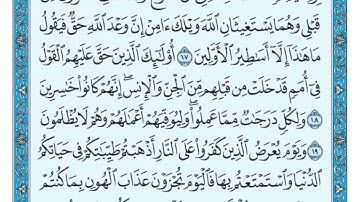 قَبْلِي وَهُمَا يَسْتَغِيثَانِ ٱللَّهَ وَيْلَكَ ءَامِنْ إِنَّ وَعْدَ ٱللَّهِ حَقٌّ فَيَقُولُ
مَا هَٰذَآ إِلَّآ أَسَٰطِيرُ ٱلْأَوَّلِينَ ١٧ أُو۟لَٰٓئِكَ ٱلَّذِينَ حَقَّ عَلَيْهِمُ ٱلْقَوْلُ
فِىٓ أُمَمٍ قَدْ خَلَتْ مِن قَبْلِهِم مِّنَ ٱلْجِنِّ وَٱلْإِنسِ ۖ إِنَّهُمْ كَانُوا۟ خَٰسِرِينَ
١٨ وَلِكُلٍّ دَرَجَٰتٌ مِّمَّا عَمِلُوا۟ ۖ وَلِيُوَفِّيَهُمْ أَعْمَٰلَهُمْ وَهُمْ لَا يُظْلَمُونَ
١٩ وَيَوْمَ يُعْرَضُ ٱلَّذِينَ كَفَرُوا۟ عَلَى ٱلنَّارِ أَذْهَبْتُمْ طَيِّبَٰتِكُمْ فِى حَيَاتِكُمُ
ٱلدُّنْيَا وَٱسْتَمْتَعْتُم بِهَا فَٱلْيَوْمَ تُجْزَوْنَ عَذَابَ ٱلْهُونِ بِمَا كُنتُمْ